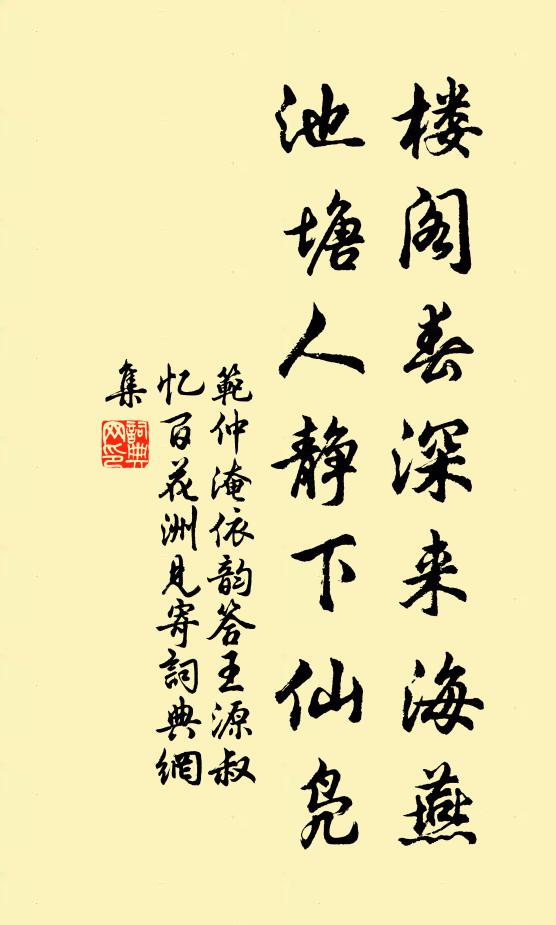 楼阁春深来海燕
池塘人静下仙凫
範仲淹依韵答王源叔
忆百花洲见寄詞典網
集
詞典
网印